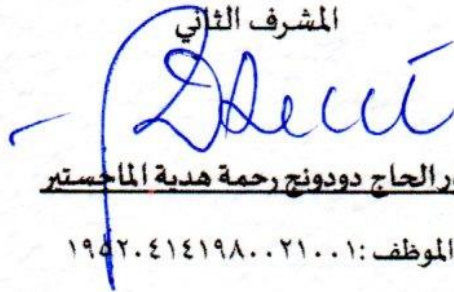 المشرف الثاني
ور الحاج دودونج رحمة هدية الماجستير
الموظف :١٩٥٢٠٤١٤١٩٨٠٠٢١٠٠١